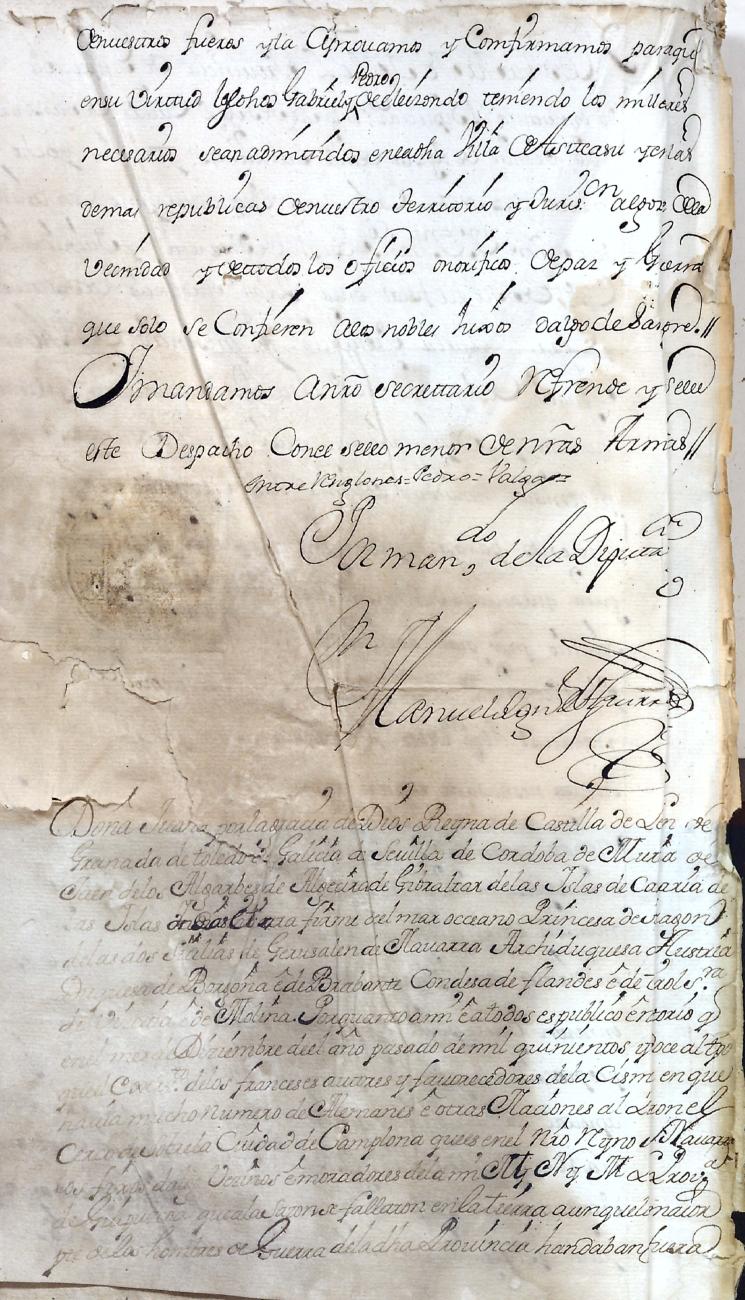 denuestros fueros y la aprouamos y Confirmamos paraque
ensu Virtud los dhos Gabriel y Pedro de Eleizondo teniendo los millares
necesarios sean admitidos en la dha Villa de Asteasu y en las
demas republicas de nuestro territorio y Juris.on algoze dela
Vecindad y de todos los oficios onorificos de paz y Guerra
que solo se Confieren alos nobles hixos dalgo de Sangre.//
Imandamos anro Secrettario Refrende y selle
este Despacho Conel sello menor de nras Armas//
Entre Renglones = Pedro = Valga =
Por man.do de la Diputa.on
Manuel Ign.o de Aguirre
Doña Juana por la gracia de Dios Reyna de Castilla de Leon de
Granada de toledo de Galicia de Seuilla de Cordoba de Murcia de
Jaen delos Algarbes de Algecira de Gibraltar delas Islas de Canaria de
las Islas tierra firme del mar occeano Princesa de Aragon
delas dos Sicilias de Gerusalen de Nauarra Archiduquesa de Austria
Duquesa de Borgoña é de Brabante Condesa de flandes é de tirol S.ra
de Vizcaia é de Molina. Porquanto ami é a todos es publico é notorio q
en el mes de Diziembre deel año pasado de mil quinientos y doce al tpo
quel delos franceses autores y fauorecedores dela Cisma en que
hauia mucho numero de Alemanes é otras Naciones alzaron el
Cerco de sobre la Ciudad de Pamplona que es en el nro Reyno de Nauarra
Vecinos é moradores dela mi M. N. y M. L. Prov.a
de Guipuzcoa que ala sazon se fallaron en la tierra aunque la maior
pte de los hombres de Guerra dela dha Prouincia handaban fuera